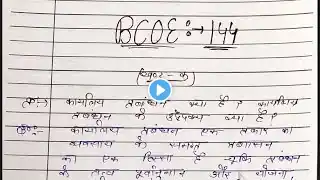 BCOE :→ 144
(खण्ड - क)
प्र० :→ कार्यालय प्रबंधन क्या है ? कार्यालय
प्रबंधन के उद्देश्य क्या है ?
उ० :→ कार्यालय प्रबंधन एक प्रकार का
व्यवसाय के समग्र प्रशासन
का एक हिस्सा है चूंकि प्रबंधन
के तत्व पूर्वानुमान और योजना,